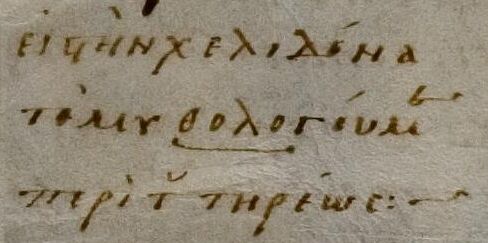 εἰς τὴν χελιδόνα
τὸ μυθολογούμ
περὶ τ τηρέως:~